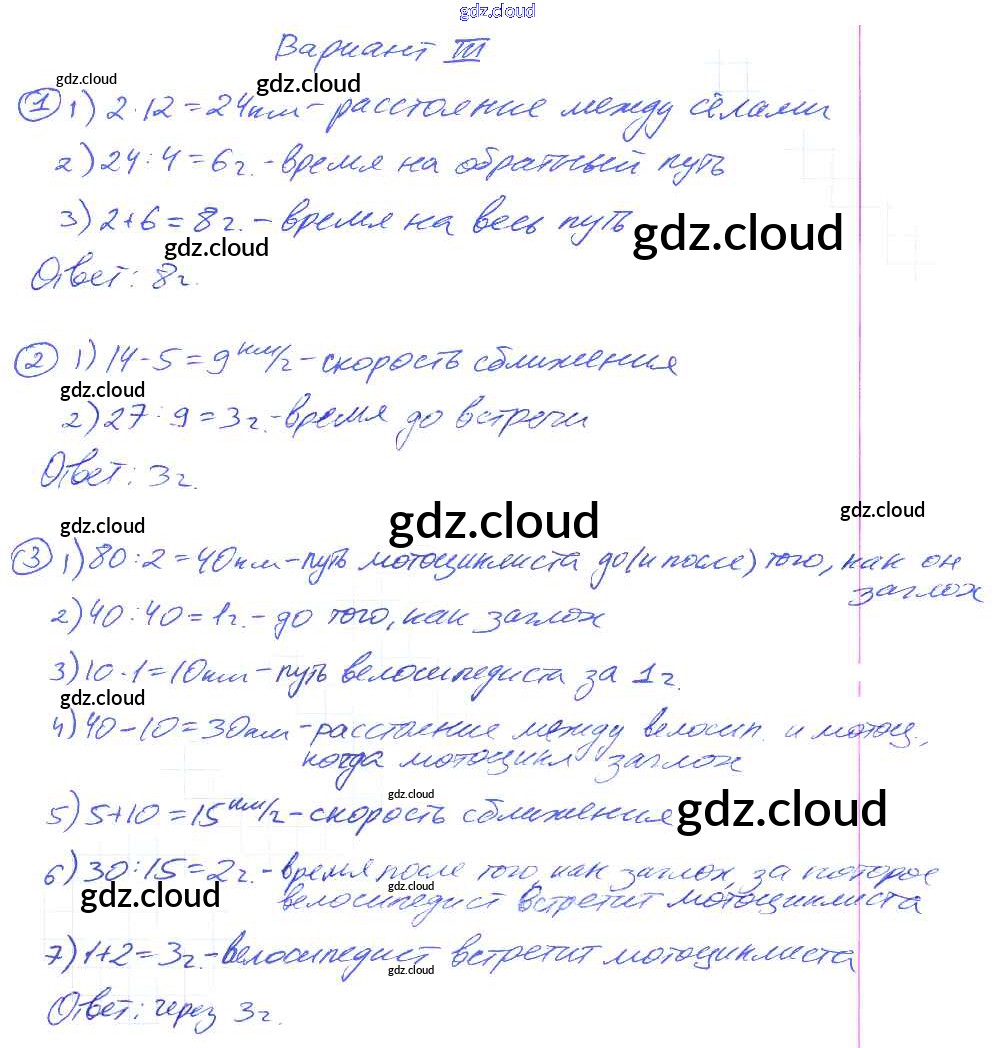 gdz.cloud
Вариант III
gdz.cloud
gdz.cloud
① 1) 2·12=24км-расстояние между сёлами
2) 24:4=6г.-время на обратный путь
3) 2+6=8г.-время на весь путь
gdz.cloud
gdz.cloud
Ответ: 8г.
② 1) 14-5=9 км/г-скорость сближения
gdz.cloud
2) 27:9=3г.-время до встречи
Ответ: 3г.
gdz.cloud
gdz.cloud
gdz.cloud
③ 1) 80:2=40км-путь мотоциклиста до(и после) того, как он
заглох
2) 40:40=1г.-до того, как заглох
3) 10·1=10км-путь велосипедиста за 1г.
gdz.cloud
4) 40-10=30км-расстояние между велосип. и мотоц.,
когда мотоцикл заглох
gdz.cloud
5) 5+10=15 км/г-скорость сближения
gdz.cloud
6) 30:15=2г.-время после того, как заглох, за которое
gdz.cloud
gdz.cloud
велосипедист встретит мотоциклиста
7) 1+2=3г.-велосипедист встретит мотоциклиста
gdz.cloud
Ответ: через 3г.